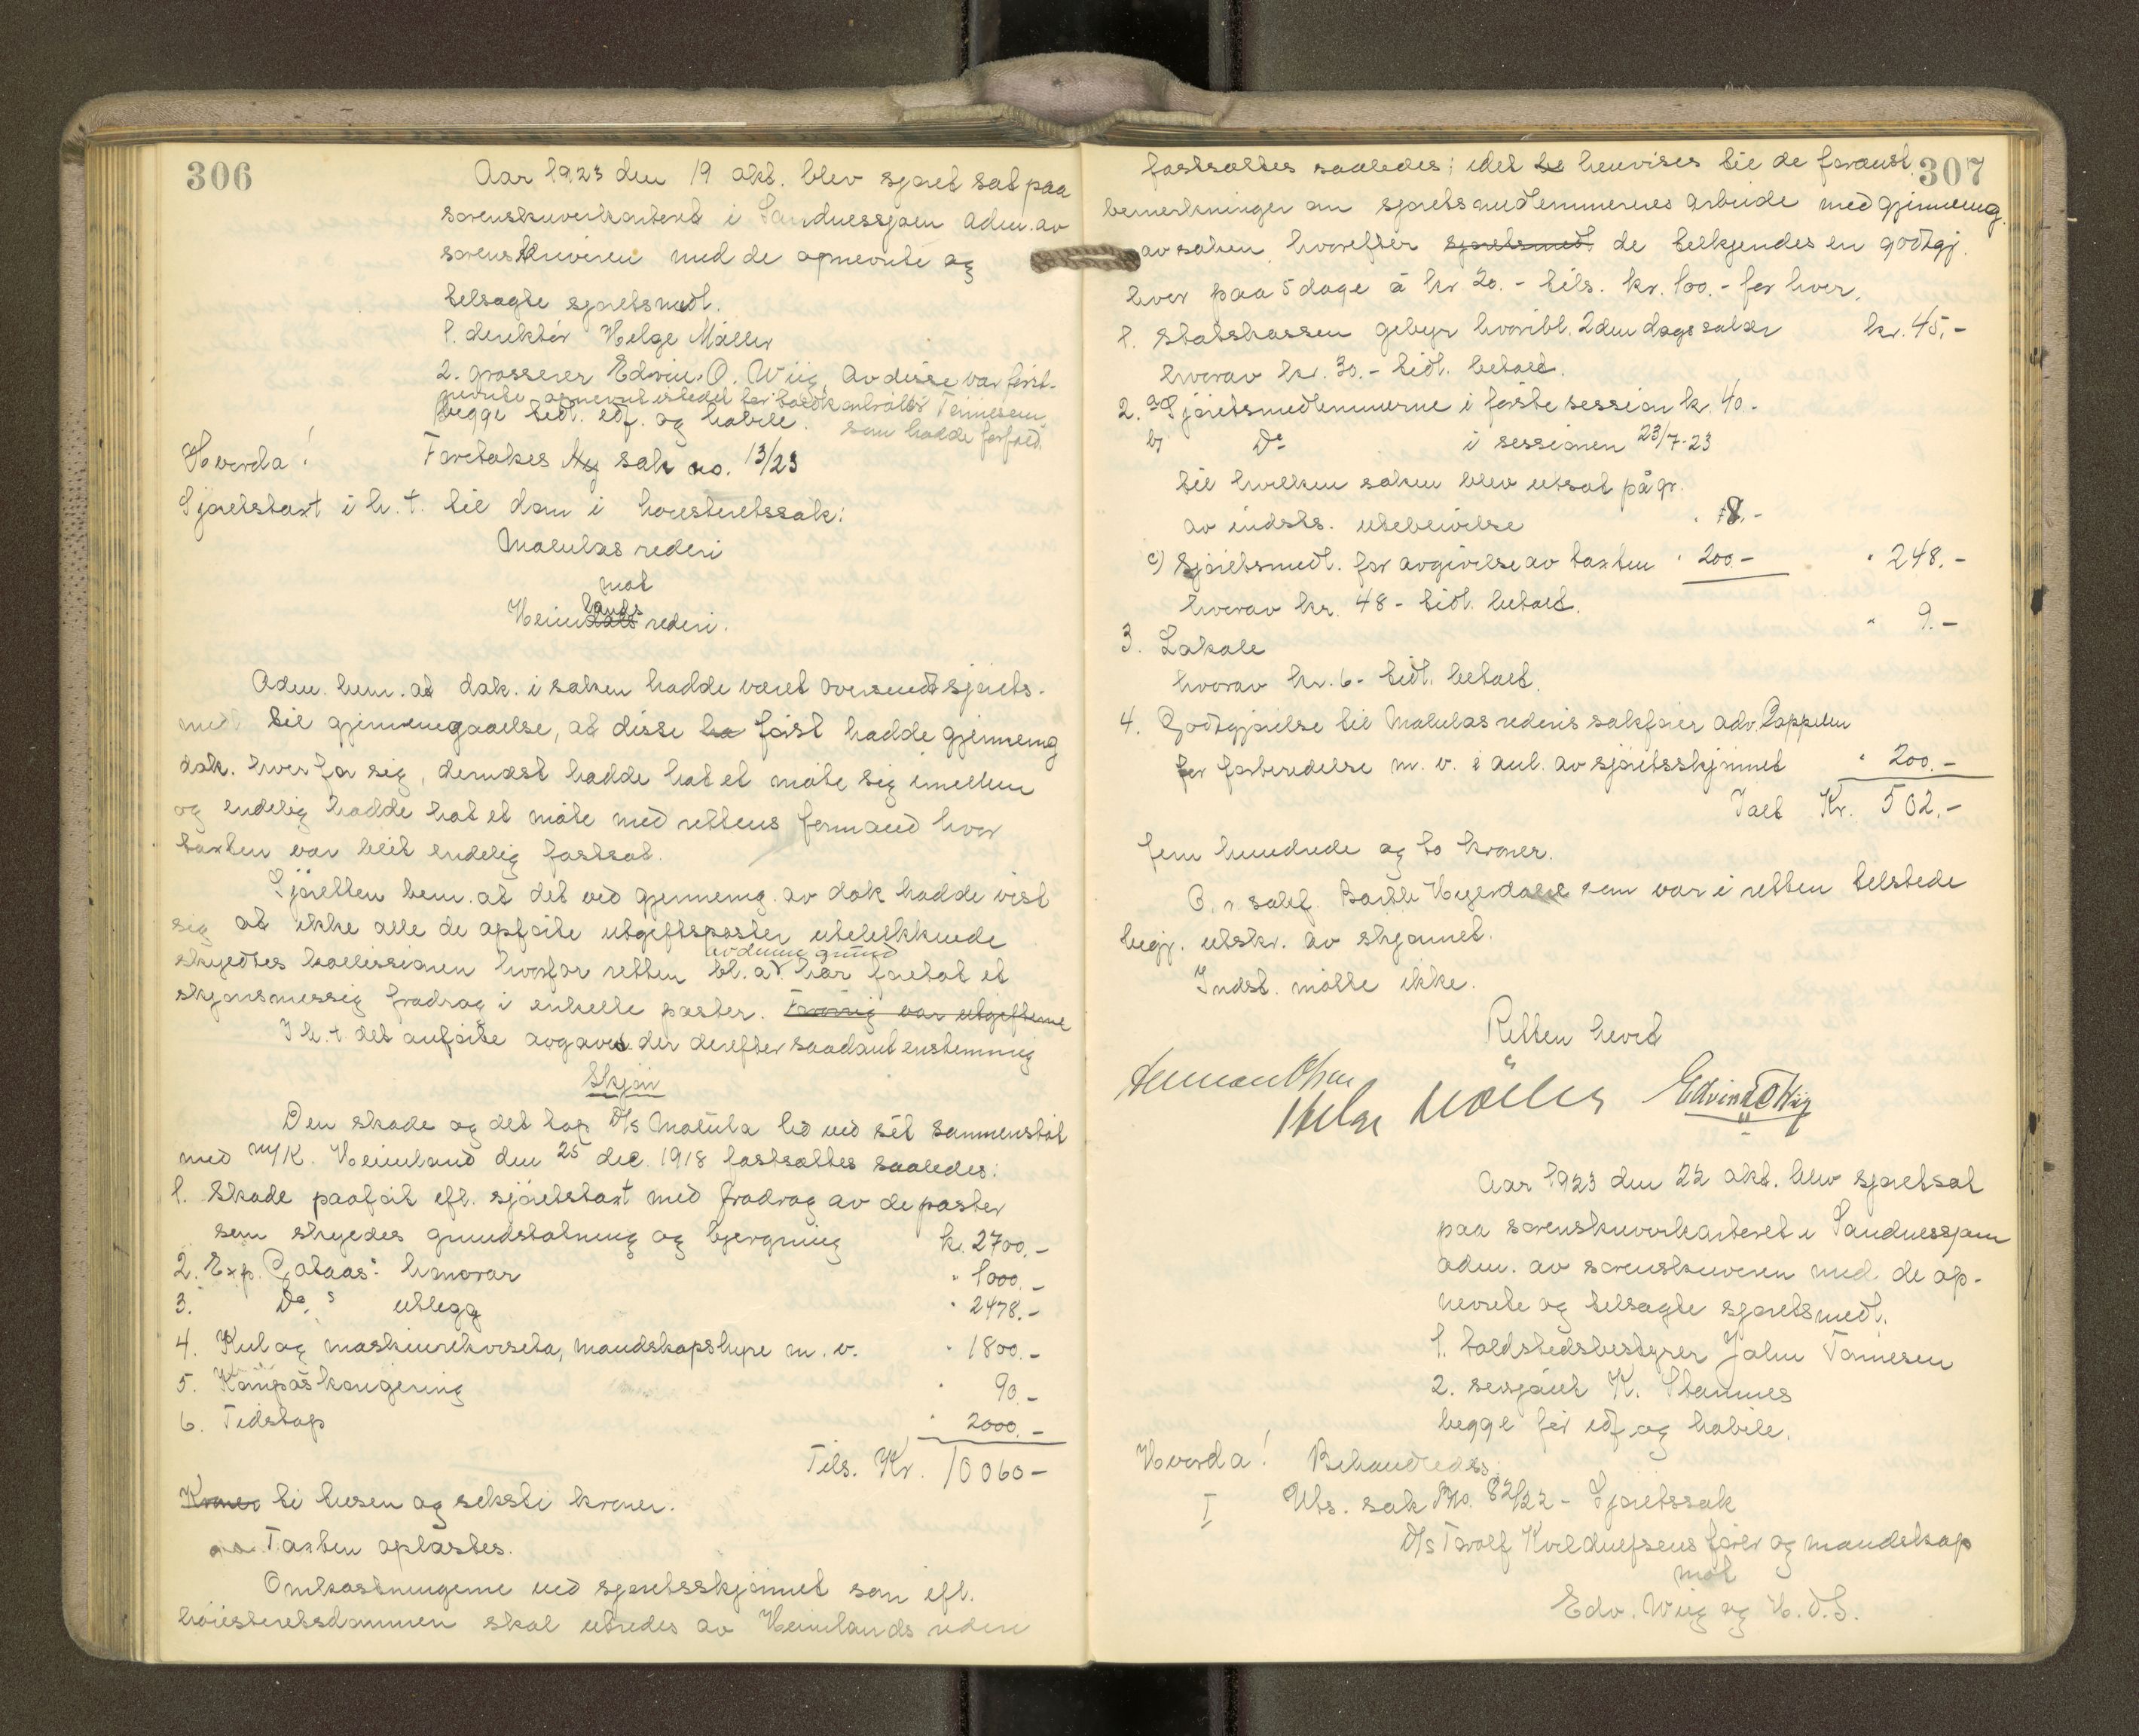 306
Aar 1923 den 19 okt. blev sjøret sat paa
sorenskriverkontoret i Sandnessjøen adm. av
sorenskriveren med de opnevnte og
tilsagte sjøretsmedl.
1. direktør Helge Møller
2. grosserer Edvin O. Wiig, av disse var først-
nevnte opnevnt istedet for toldkontrollør Tønnesen
som hadde forfald.
begge tidl. edf. og habile.
Hvorda! Foretokes sak no. 13/23
Sjøretstaxt i h. t. til dom i høiesteretssak:
Matulas rederi
mot
Heimlands rederi.
Adm. bem. at dok. i saken hadde været oversendt sjørets-
medl til gjennemgaaelse, at disse ha først hadde gjennemg
dok. hver for sig, dernæst hadde hat et møte sig imellem
og endelig hadde hat et møte med rettens formand hvor
taxten var blit endelig fastsat.
Sjøretten bem. at det ved gjennemg. av dok hadde vist
sig at ikke alle de opførte utgiftsposter utelukkende
skyldtes kollissionen hvorfor retten bl. a. av denne grund har foretat et
skjønsmessig fradrag i enkelte poster. Forøvrig var utgifterne
I h. t. det anførte avgaves der derefter saadant enstemmig
Skjøn
Den skade og det tap D/s Matula led ved sit sammenstøt
med M/K. Heimland den 25 dec. 1918 fastsættes saaledes:
1. Skade paaført efl. sjøretstaxt med fradrag av de poster
som skyldes grundstøtning og bjergning k. 2700.-
2. Exp. Gataas' honorar " 1000.-
3. Do. s utlegg " 2478.-
4. Kul og maskinrekvisita, mandskapshyre m. v. " 1800.-
5. Kompaskorrigering " 90.-
6. Tidstap " 2000.-
Tils. Kr. 10060-
Kroner ti tusen og seksti kroner.
Taxten oplæstes.
Omkostningerne ved sjøretsskjønnet som efl.
høiesteretsdommen skal utredes av Heimlands rederi
307
fastsættes saaledes; idet henvises til de foranst.
bemerkninger om sjøretsmedlemmernes arbeide med gjennemg.
av saken, hvorefter sjøretsmedl. de tilkjendes en godtgj.
hver paa 5 dage à kr 20.- tils. kr. 100.- for hver.
1. Statskassen gebyr hvoribl. 2den dags sakr kr. 45,-
hvorav kr. 30.- tidl. betalt.
2. a) Sjøretsmedlemmerne i første session k. 40.-
b) Do i sessionen 23/7-23
til hvilken saken blev utsat på gr.
av indsts. uteblivelse " 8.-
c) Sjøretsmedl. for avgivelse av taxten " 200.- " 248.-
hvorav kr. 48- tidl. betalt.
3. Lokale " 9.-
hvorav kr. 6- tidl. betalt.
4. Godtgjørelse til Matulas rederis sakfører adv. Coppelen
for forberedelse m. v. i anl. av sjøretsskjønnet " 200.-
Ialt Kr. 502.-
fem hundrede og to kroner.
O. r. sakf. Bartle Heyerdahl som var i retten tilstede
begj. utskr. av skjønnet.
Indst. møtte ikke.
Retten hevet
Helge Møller Edvin O Wiig
Aar 1923 den 22 okt. blev sjøret sat
paa sorenskriverkontoret i Sandnessjøen
adm. av sorenskriveren med de op-
nevnte og tilsagte sjøretsmedl.
1. toldstedsbestyrer John Tønnesen
2. K. Stamnes
begge før edf. og habile.
Hvorda! Behandledes:
I Uts. sak No. 82/22 - Sjøretssak
D/s Torolf Kveldulfsens fører og mandskap
mot
Edv. Wiig og H. D. S.